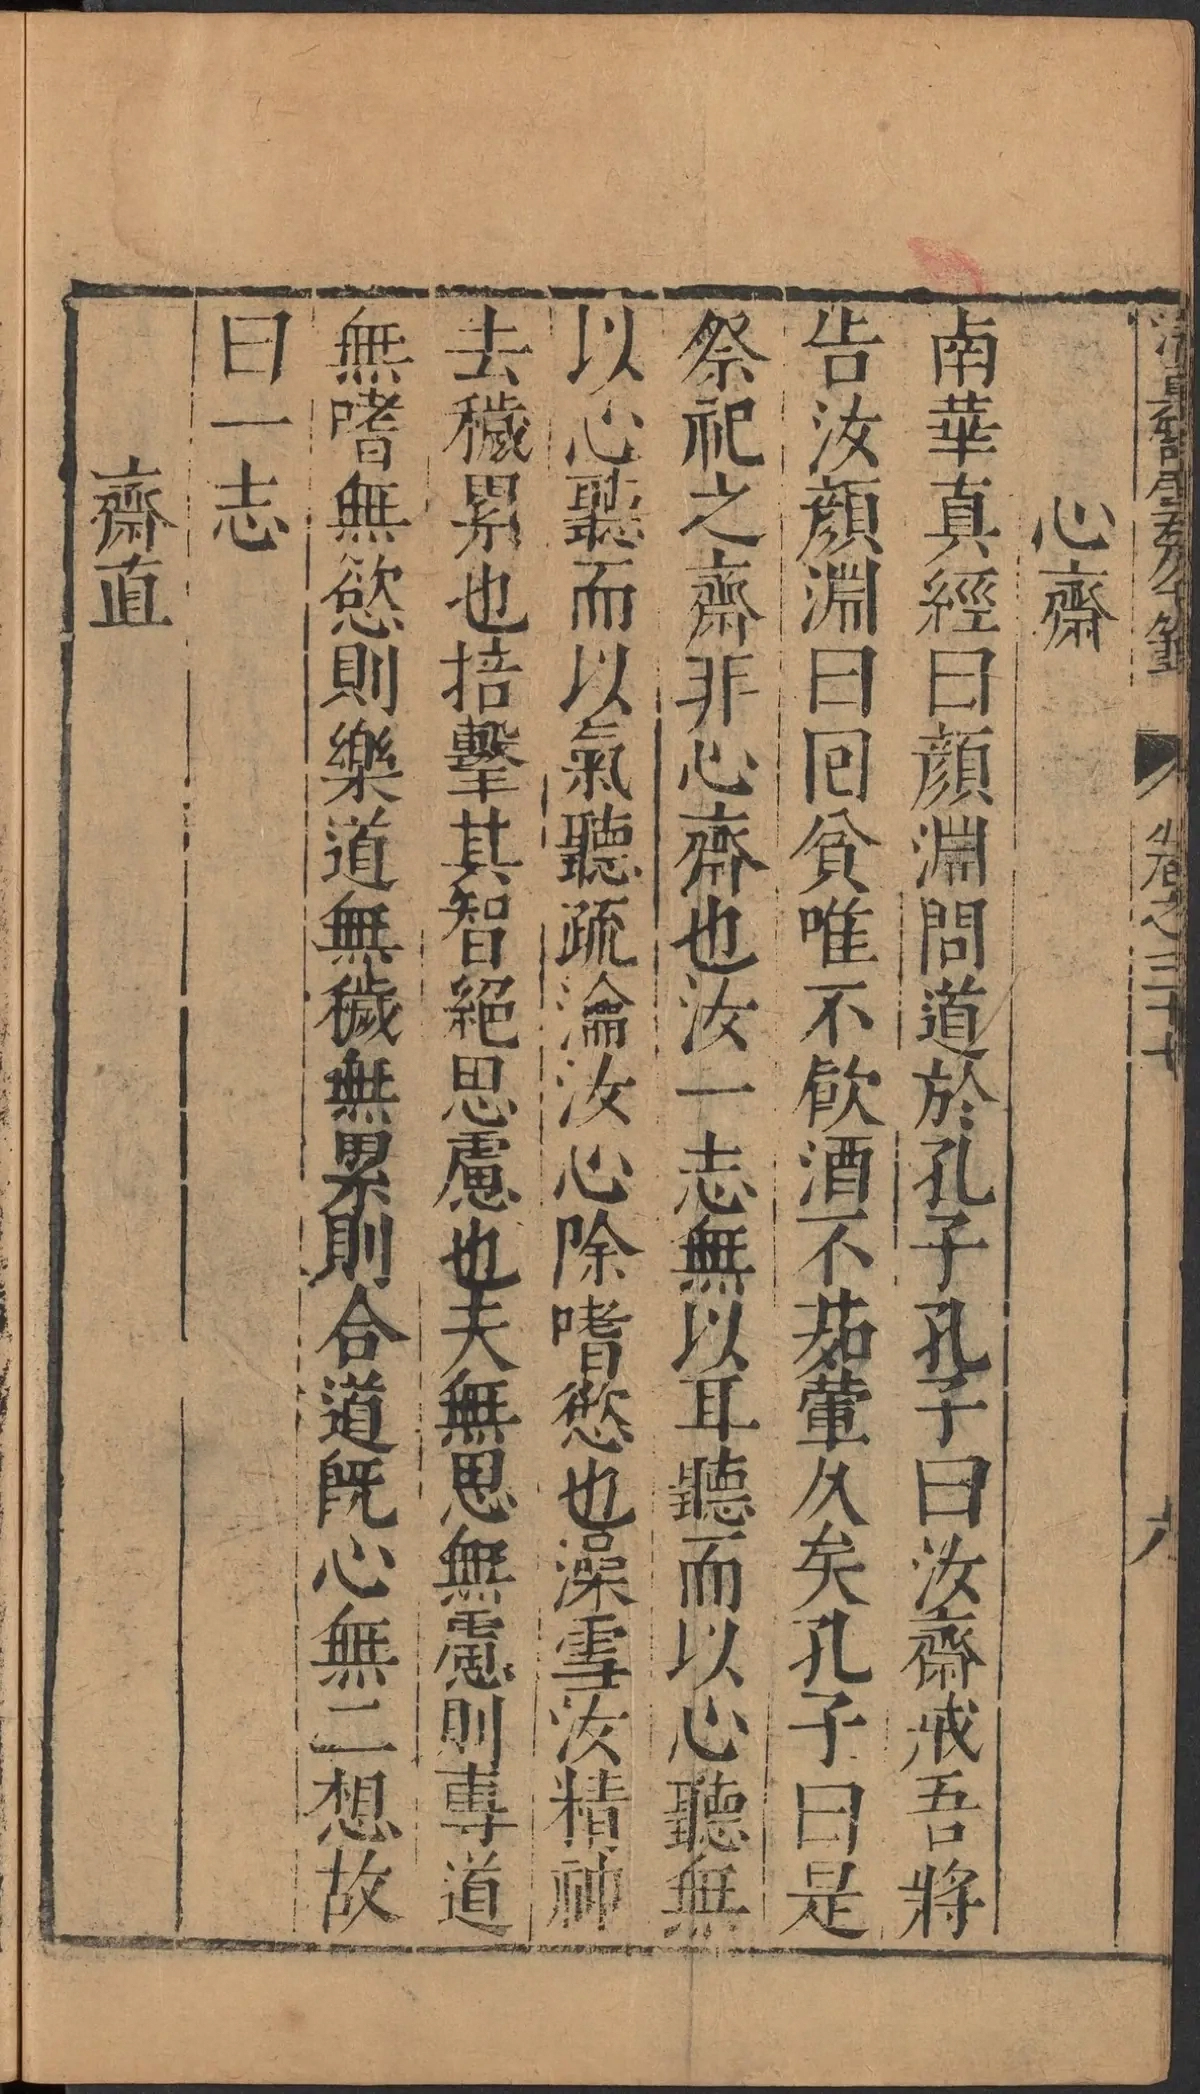 心齋
南華真經曰顔淵問道於孔子孔子曰汝齋戒吾將
告汝顔淵曰回貧唯不飲酒不茹葷久矣孔子曰是
祭祀之齋非心齋也汝一志無以耳聽而以心聽無
以心聽而以氣聽疏瀹汝心除嗜慾也澡雪汝精神
去穢累也掊擊其智絕思慮也夫無思無慮則專道
無嗜無慾則樂道無穢無累則合道既心無二想故
曰一志
齋直